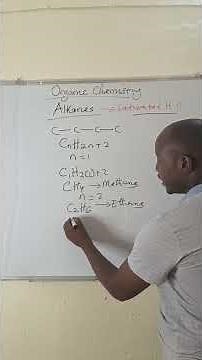 Organic Chemistry
Alkanes → Saturated H.C
C – C – C – C
CnH2n+2
n=1
C1H2(1)+2
CH4 → Methane
n=2
C2H6 → Ethane